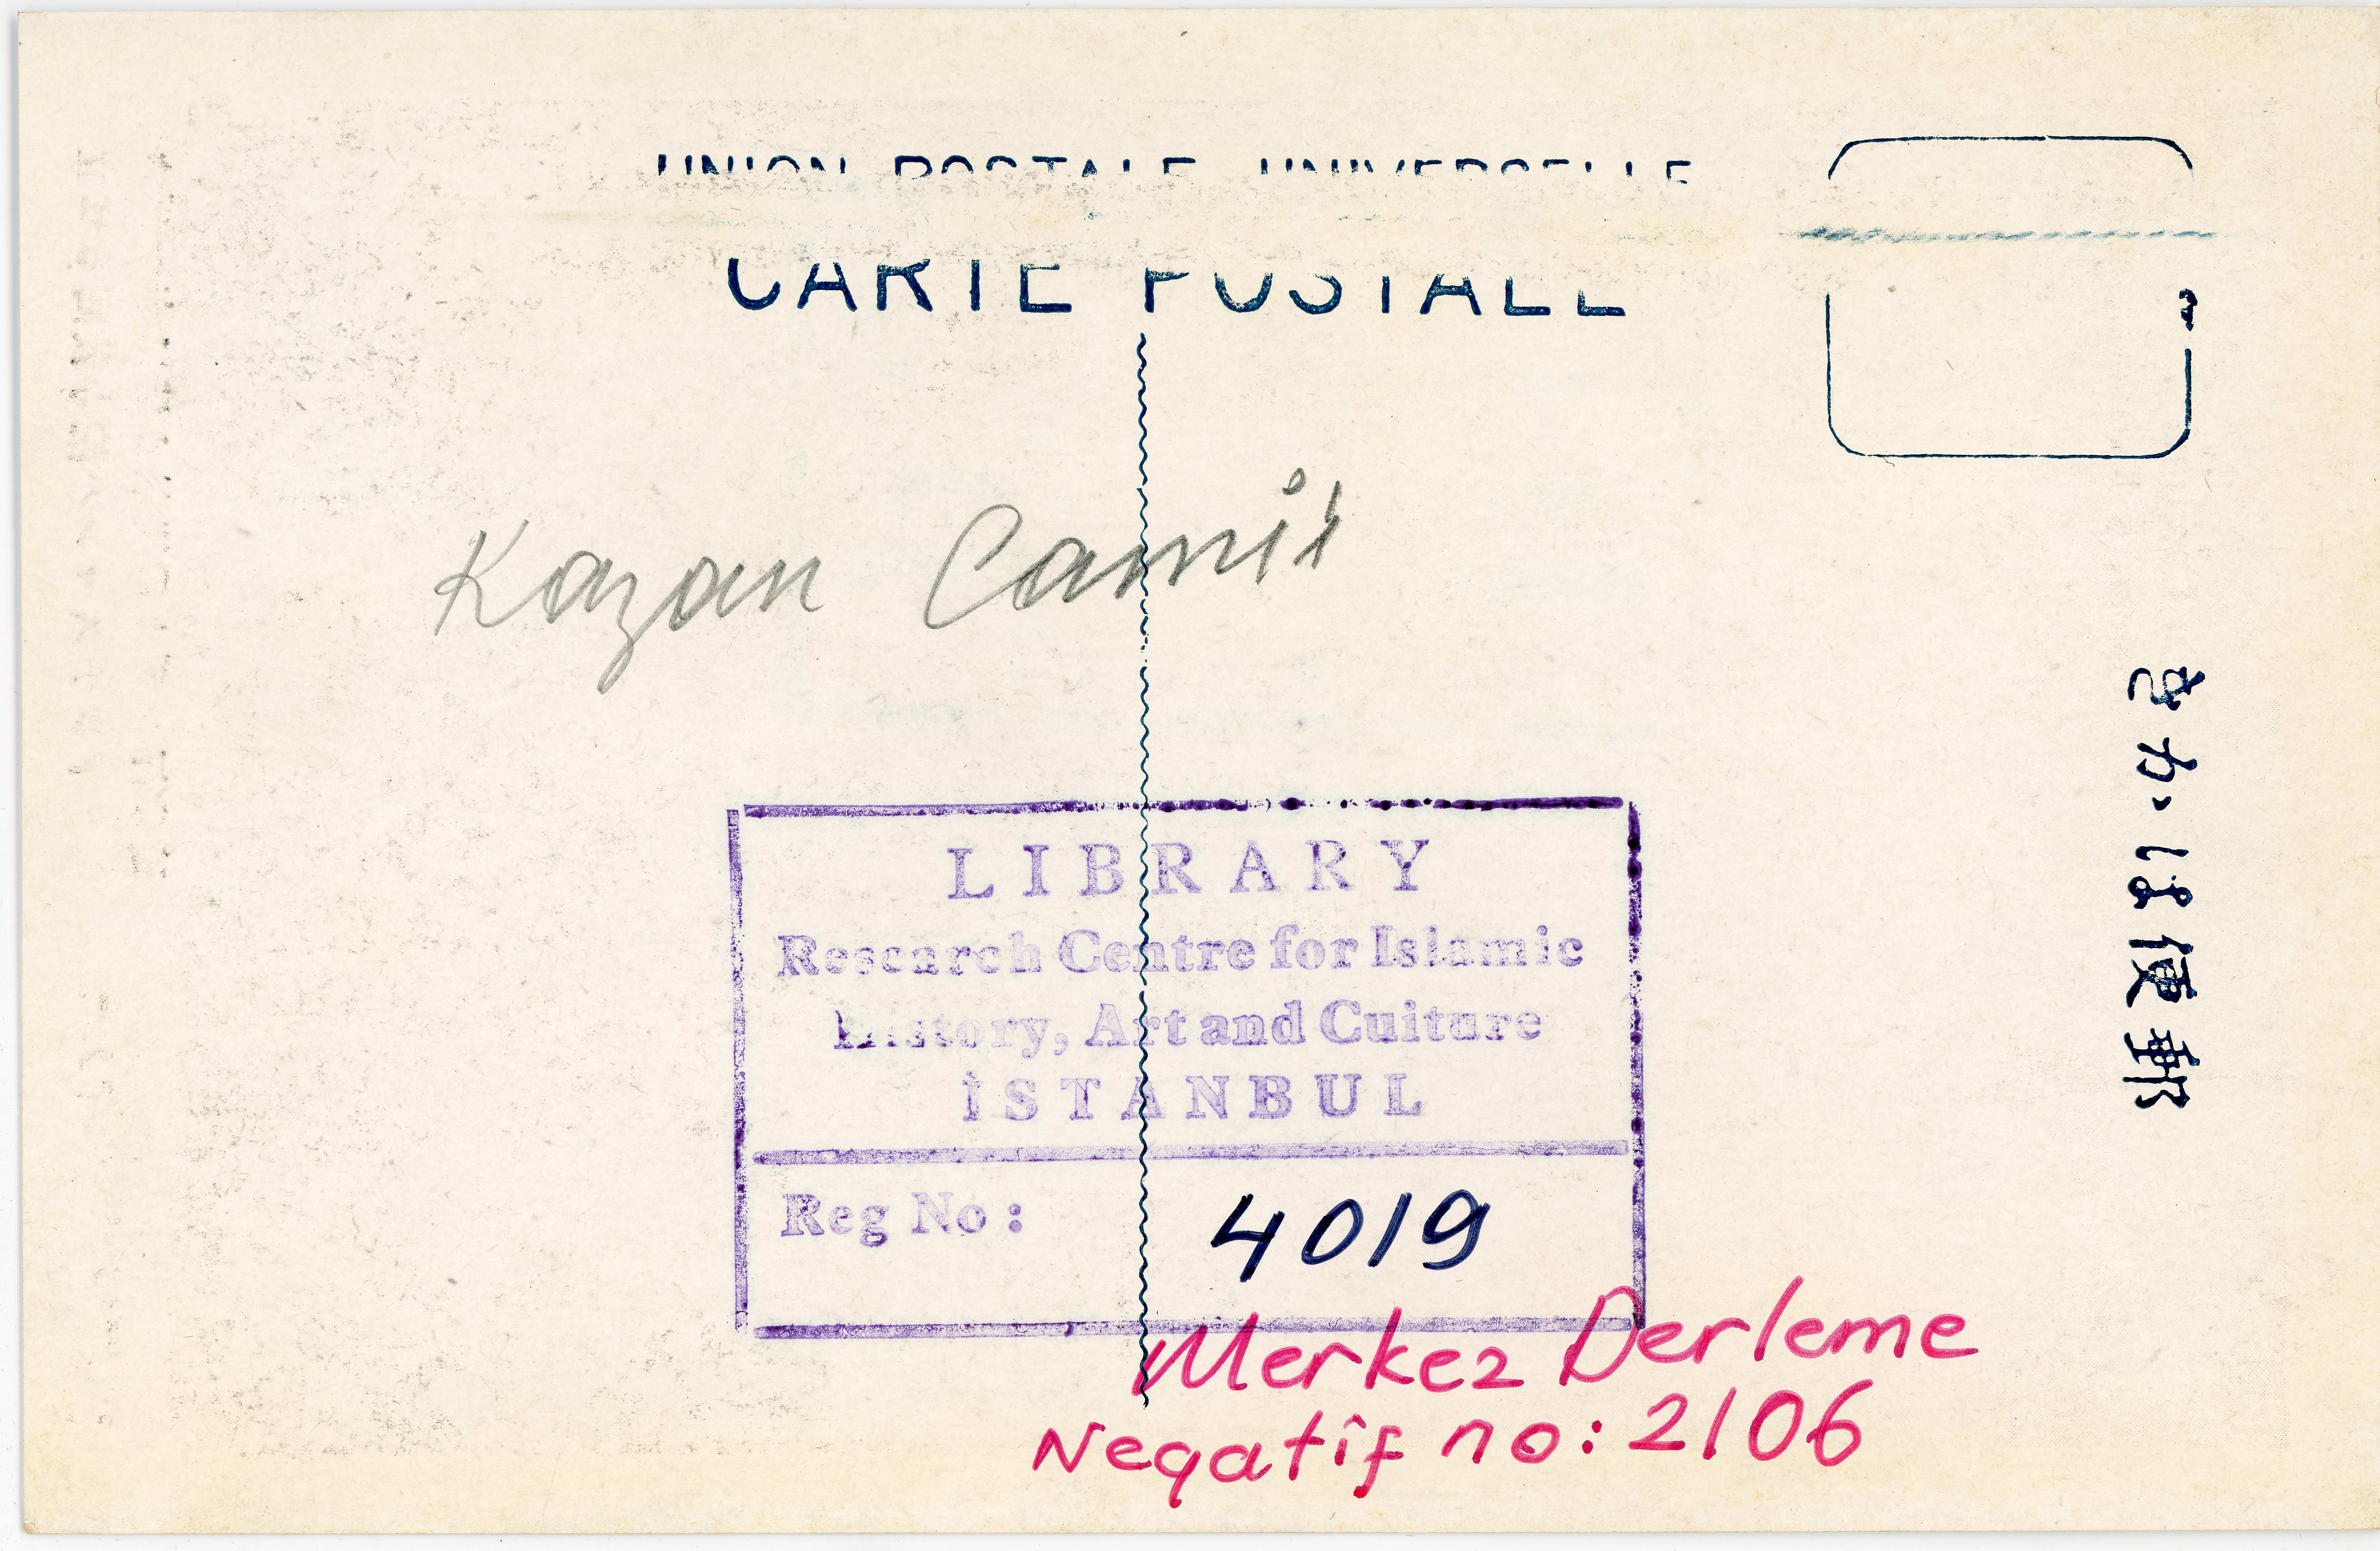 UNION POSTALE UNIVERSELLE
CARTE POSTALE
Kazan Camii
郵便はかき
LIBRARY
Research Centre for Islamic
History, Art and Culture
İSTANBUL
Reg No: 4019
Merkez Derleme
Negatif no: 2106